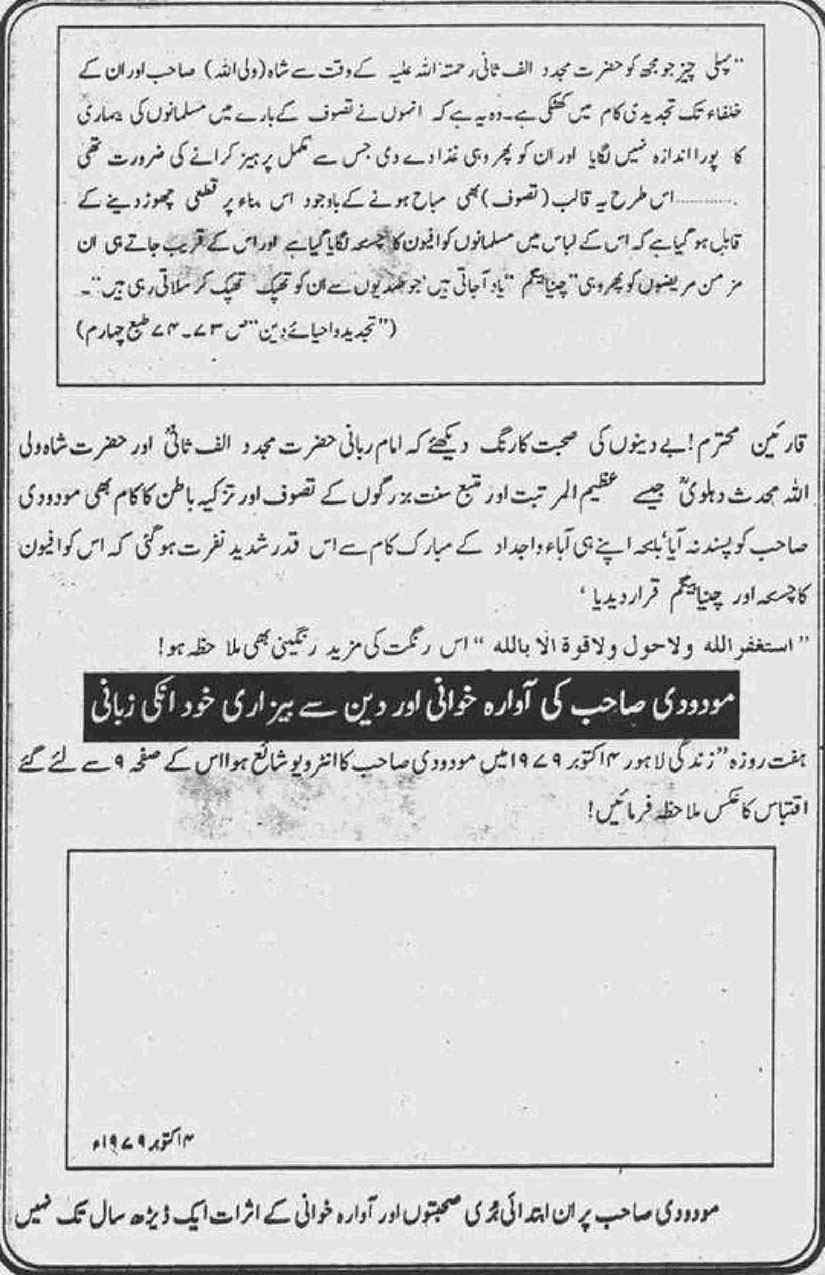 "پہلی چیز جو مجھ کو حضرت مجدد الف ثانی رحمتہ اللہ علیہ کے وقت سے شاہ (ولی اللہ) صاحب اور ان کے
خلفاء تک تجدیدی کام میں کھٹکی ہے۔ وہ یہ ہے کہ انہوں نے تصوف کے بارے میں مسلمانوں کی بیماری
کا پورا اندازہ نہیں لگایا اور ان کو پھر وہی غذا دے دی جس سے مکمل پرہیز کرانے کی ضرورت تھی
............اس طرح یہ قالب (تصوف) بھی مباح ہونے کے باوجود اس بناء پر قطعی چھوڑ دینے کے
قابل ہو گیا ہے کہ اس کے لباس میں مسلمانوں کو افیون کا چسکہ لگایا گیا ہے اور اس کے قریب جاتے ہی ان
مزمن مریضوں کو پھر وہی "چنیا بیگم" یاد آجاتی ہیں' جو صدیوں سے ان کو تھپک تھپک کر سلاتی رہی ہیں"۔
("تجدید و احیائے دین" ص ۷۳۔۷۴ طبع چہارم)
قارئین محترم! بے دینوں کی صحبت کا رنگ دیکھئے کہ امام ربانی حضرت مجدد الف ثانیؒ اور حضرت شاہ ولی
اللہ محدث دہلویؒ جیسے عظیم المرتبت اور متبع سنت بزرگوں کے تصوف اور تزکیہ باطن کا کام بھی مودودی
صاحب کو پسند نہ آیا' بلکہ اپنے ہی آباء و اجداد کے مبارک کام سے اس قدر شدید نفرت ہو گئی کہ اس کو افیون
کا چسکہ اور چنیا بیگم قرار دیدیا'
"استغفر الله ولا حول ولا قوة الا بالله" اس رنگت کی مزید رنگینی بھی ملاحظہ ہو!
مودودی صاحب کی آوارہ خوانی اور دین سے بیزاری خود انکی زبانی
ہفت روزہ "زندگی لاہور ۴ اکتوبر ۱۹۷۹ میں مودودی صاحب کا انٹرویو شائع ہوا اس کے صفحہ ۹ سے لئے گئے
اقتباس کا عکس ملاحظہ فرمائیں!
۴ اکتوبر ۱۹۷۹ء
مودودی صاحب پر ان ابتدائی بُری صحبتوں اور آوارہ خوانی کے اثرات ایک ڈیڑھ سال تک نہیں